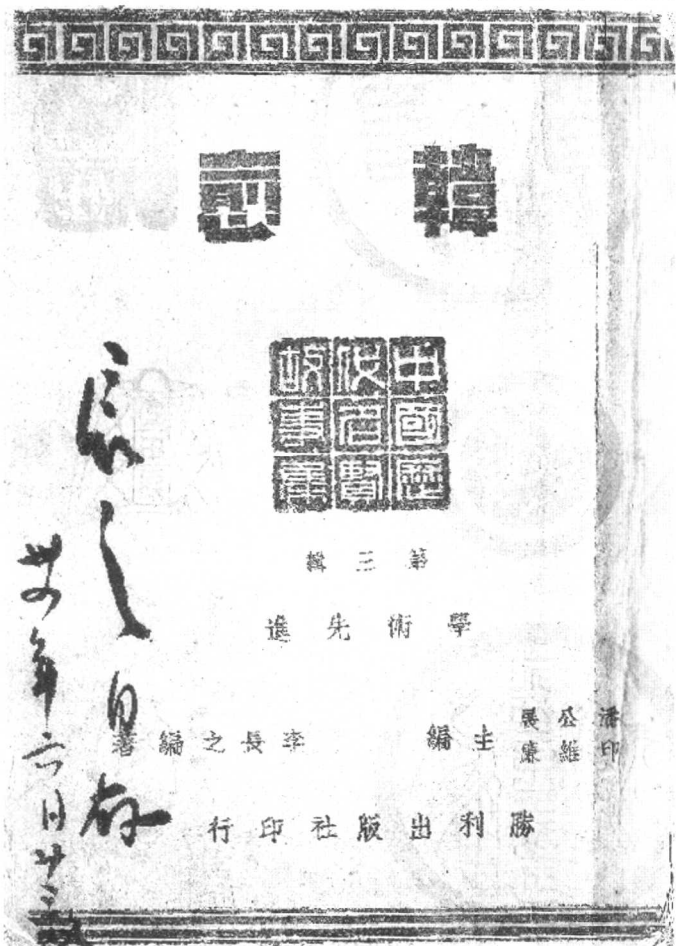 韓愈
中國歷
代名賢
故事集
第三輯
學術先進
潘公展
印維廉
主編 李長之編著
勝利出版社印行
長之自存
卅四年六月廿三